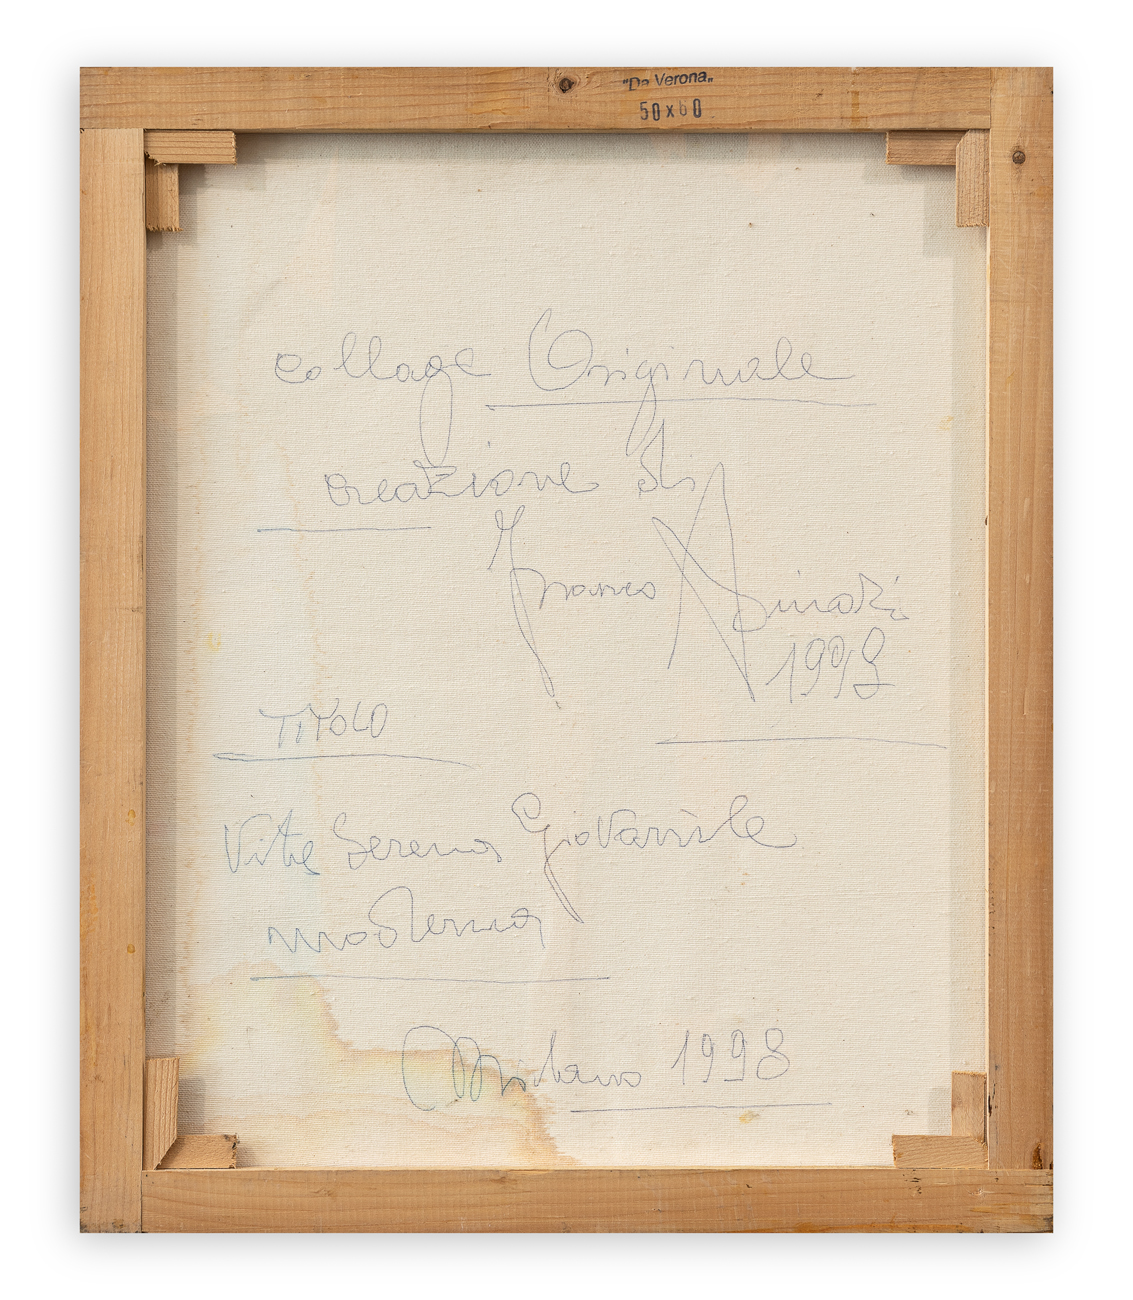 "Da Verona„
50 x 60
collage Originale
creazione di
Franco
1998
TITOLO
Vita Serena Giovanile
moderna
Milano 1998